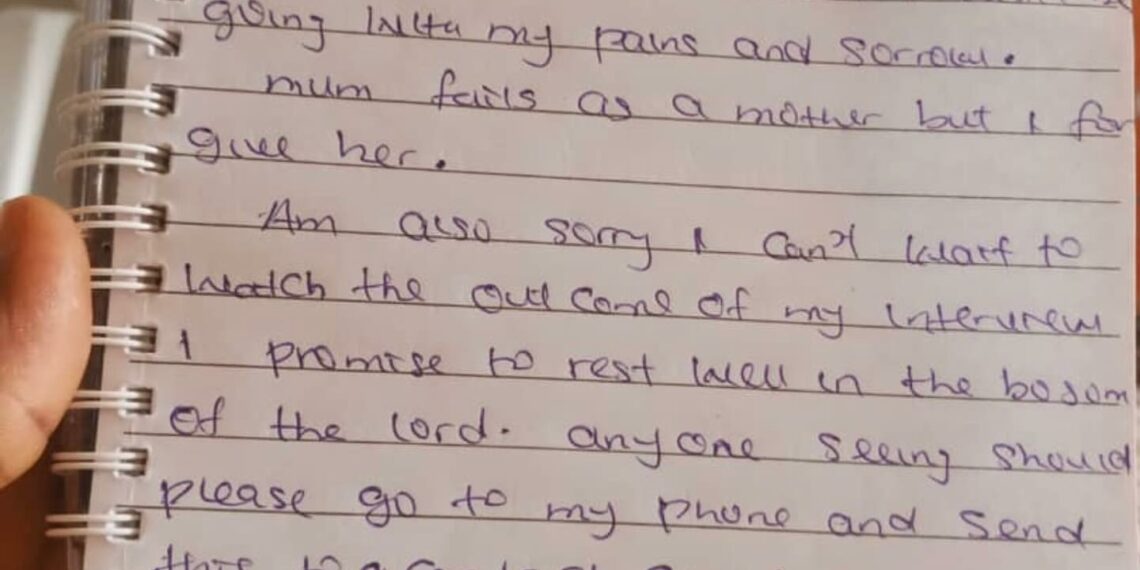 giving with my pains and sorrow.
mum fails as a mother but I for
give her.
Am also sorry I can't wait to
watch the out come of my interview
I promise to rest well in the bosom
of the lord. any one seeing should
please go to my phone and send